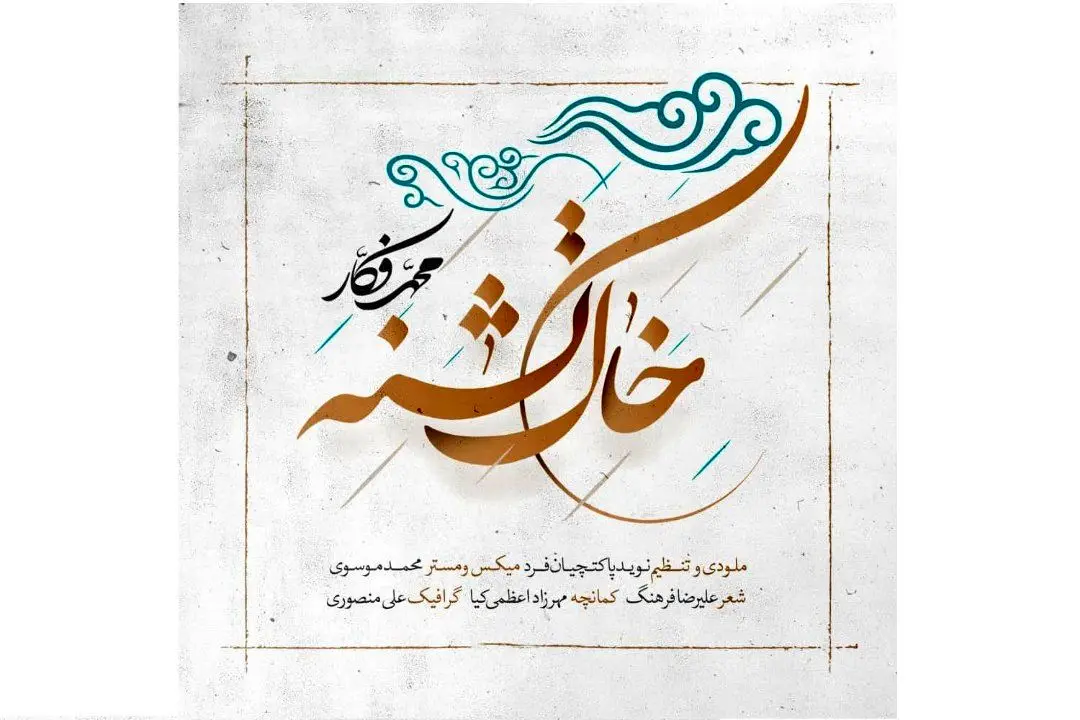 خاک تشنه
مهر فکار
ملودی و تنظیم نوید پاکتچیان فرد میکس و مستر محمد موسوی
شعر علیرضا فرهنگ کمانچه مهرزاد اعظمی کیا گرافیک علی منصوری